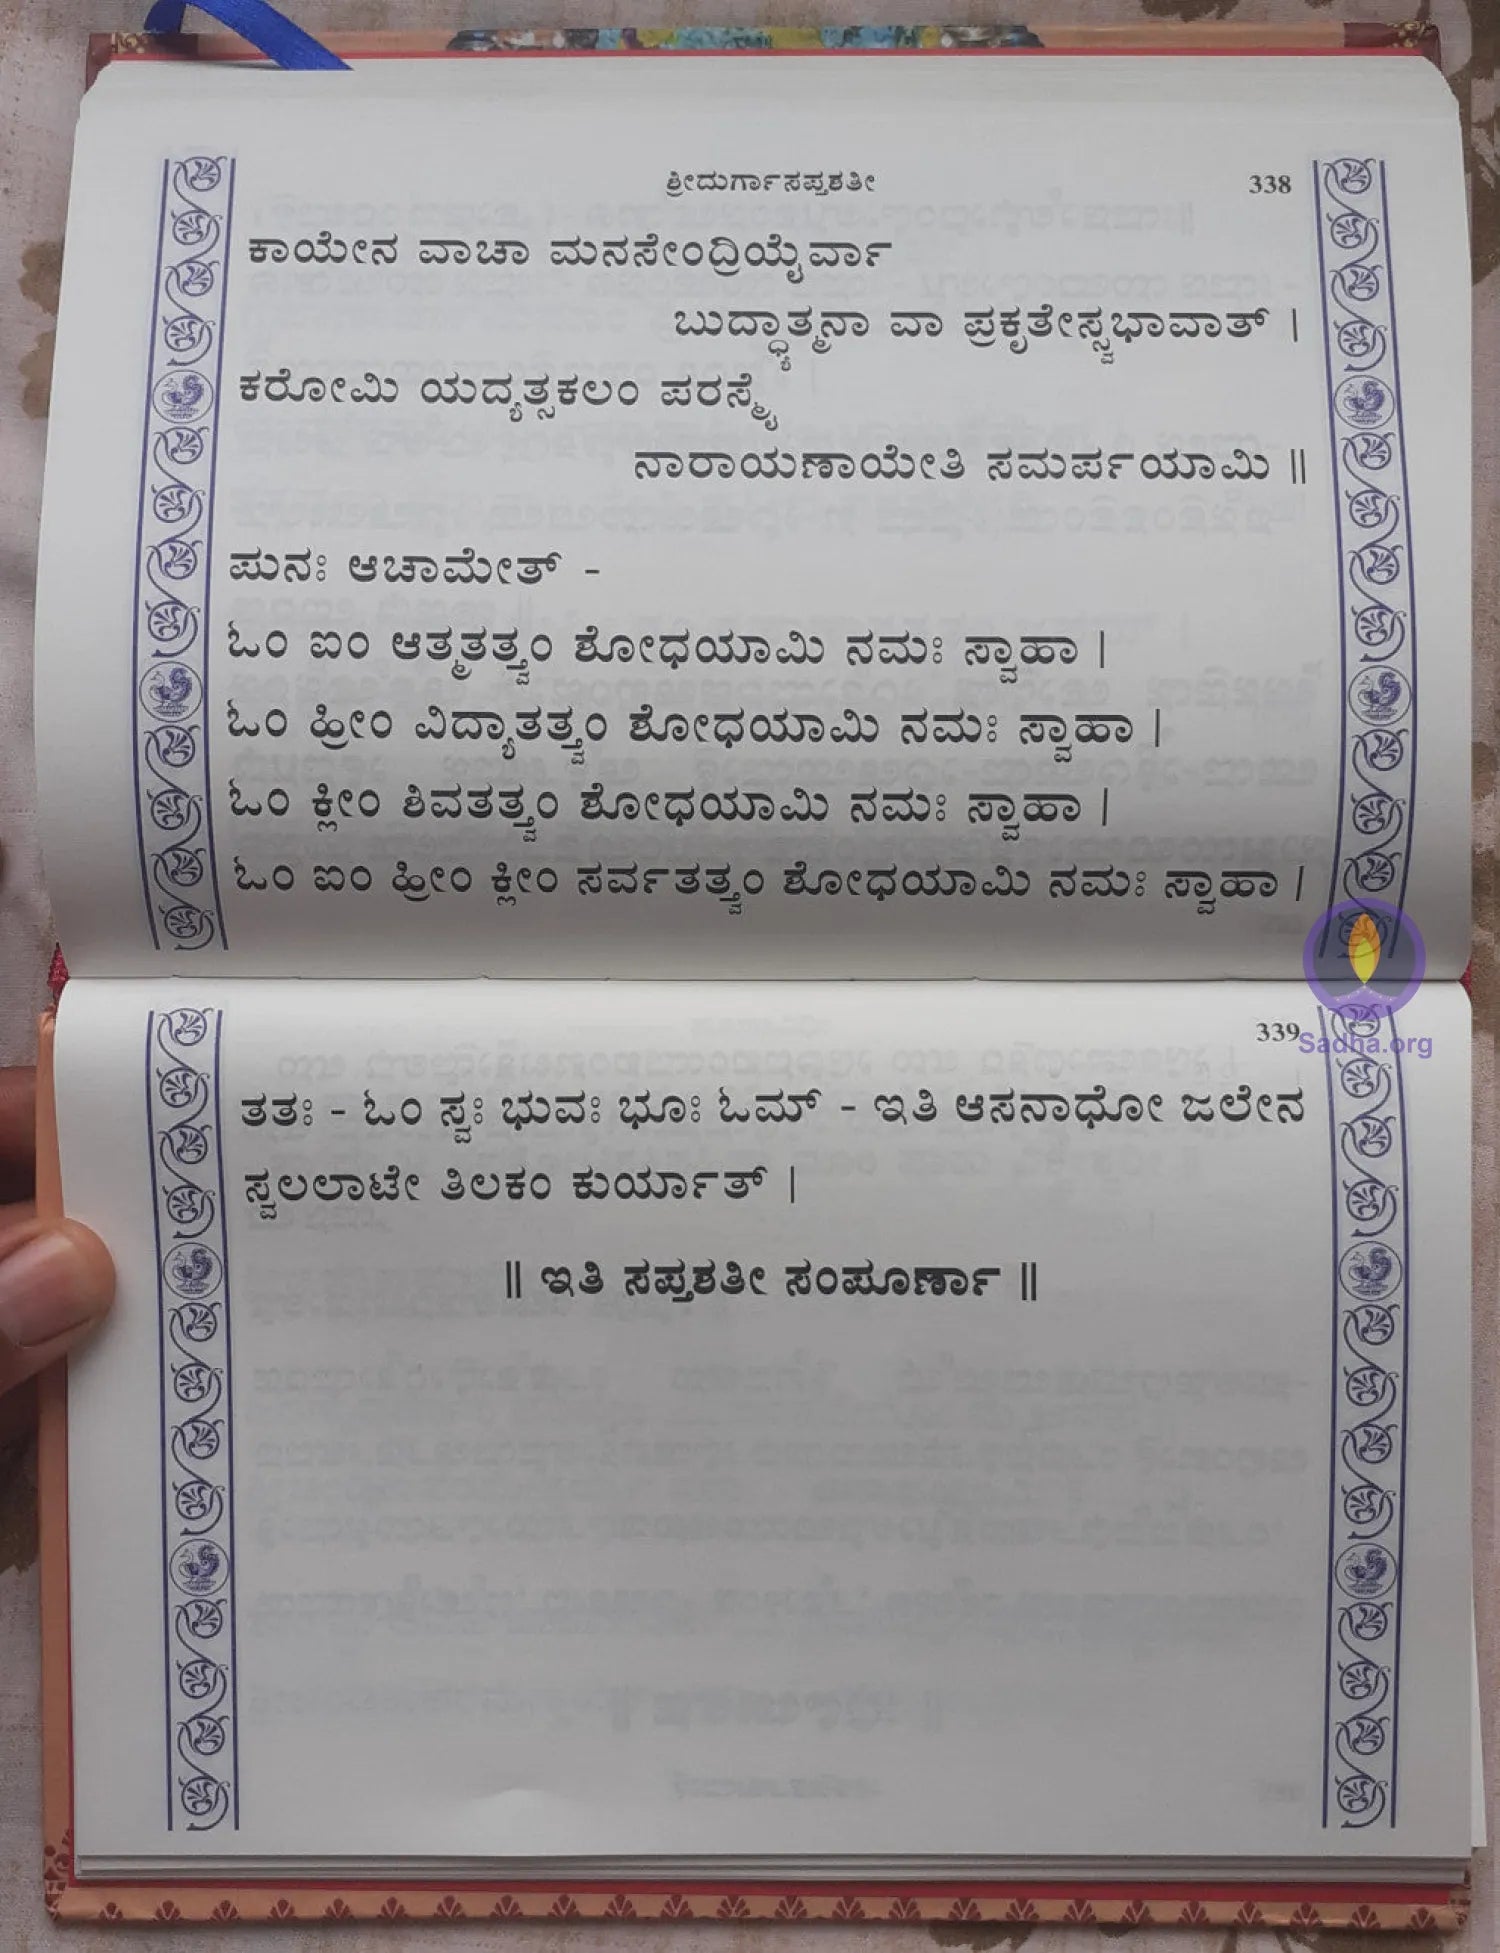 ಶ್ರೀದುರ್ಗಾಸಪ್ತಶತೀ 338
ಕಾಯೇನ ವಾಚಾ ಮನಸೇಂದ್ರಿಯೈರ್ವಾ
ಬುದ್ಧ್ಯಾತ್ಮನಾ ವಾ ಪ್ರಕೃತೇಸ್ಸ್ವಭಾವಾತ್ |
ಕರೋಮಿ ಯದ್ಯತ್ಸಕಲಂ ಪರಸ್ಮೈ
ನಾರಾಯಣಾಯೇತಿ ಸಮರ್ಪಯಾಮಿ ||
ಪುನಃ ಆಚಾಮೇತ್ -
ಓಂ ಐಂ ಆತ್ಮತತ್ತ್ವಂ ಶೋಧಯಾಮಿ ನಮಃ ಸ್ವಾಹಾ |
ಓಂ ಹ್ರೀಂ ವಿದ್ಯಾತತ್ತ್ವಂ ಶೋಧಯಾಮಿ ನಮಃ ಸ್ವಾಹಾ |
ಓಂ ಕ್ಲೀಂ ಶಿವತತ್ತ್ವಂ ಶೋಧಯಾಮಿ ನಮಃ ಸ್ವಾಹಾ |
ಓಂ ಐಂ ಹ್ರೀಂ ಕ್ಲೀಂ ಸರ್ವತತ್ತ್ವಂ ಶೋಧಯಾಮಿ ನಮಃ ಸ್ವಾಹಾ |
339
Sadha.org
ತತಃ - ಓಂ ಸ್ವಃ ಭುವಃ ಭೂಃ ಓಮ್ - ಇತಿ ಆಸನಾಧೋ ಜಲೇನ
ಸ್ವಲಲಾಟೇ ತಿಲಕಂ ಕುರ್ಯಾತ್ |
|| ಇತಿ ಸಪ್ತಶತೀ ಸಂಪೂರ್ಣಾ ||